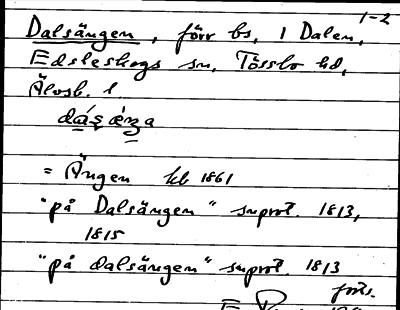 1-2
Dalsängen, förr bs, 1 Dalen,
Edsleskogs sn, Tössbo hd,
Älvsb. l
= Ängen kb 1861
"på Dalsängen" snprot. 1813,
1815
"på dalsängen" snprot. 1813
forts.